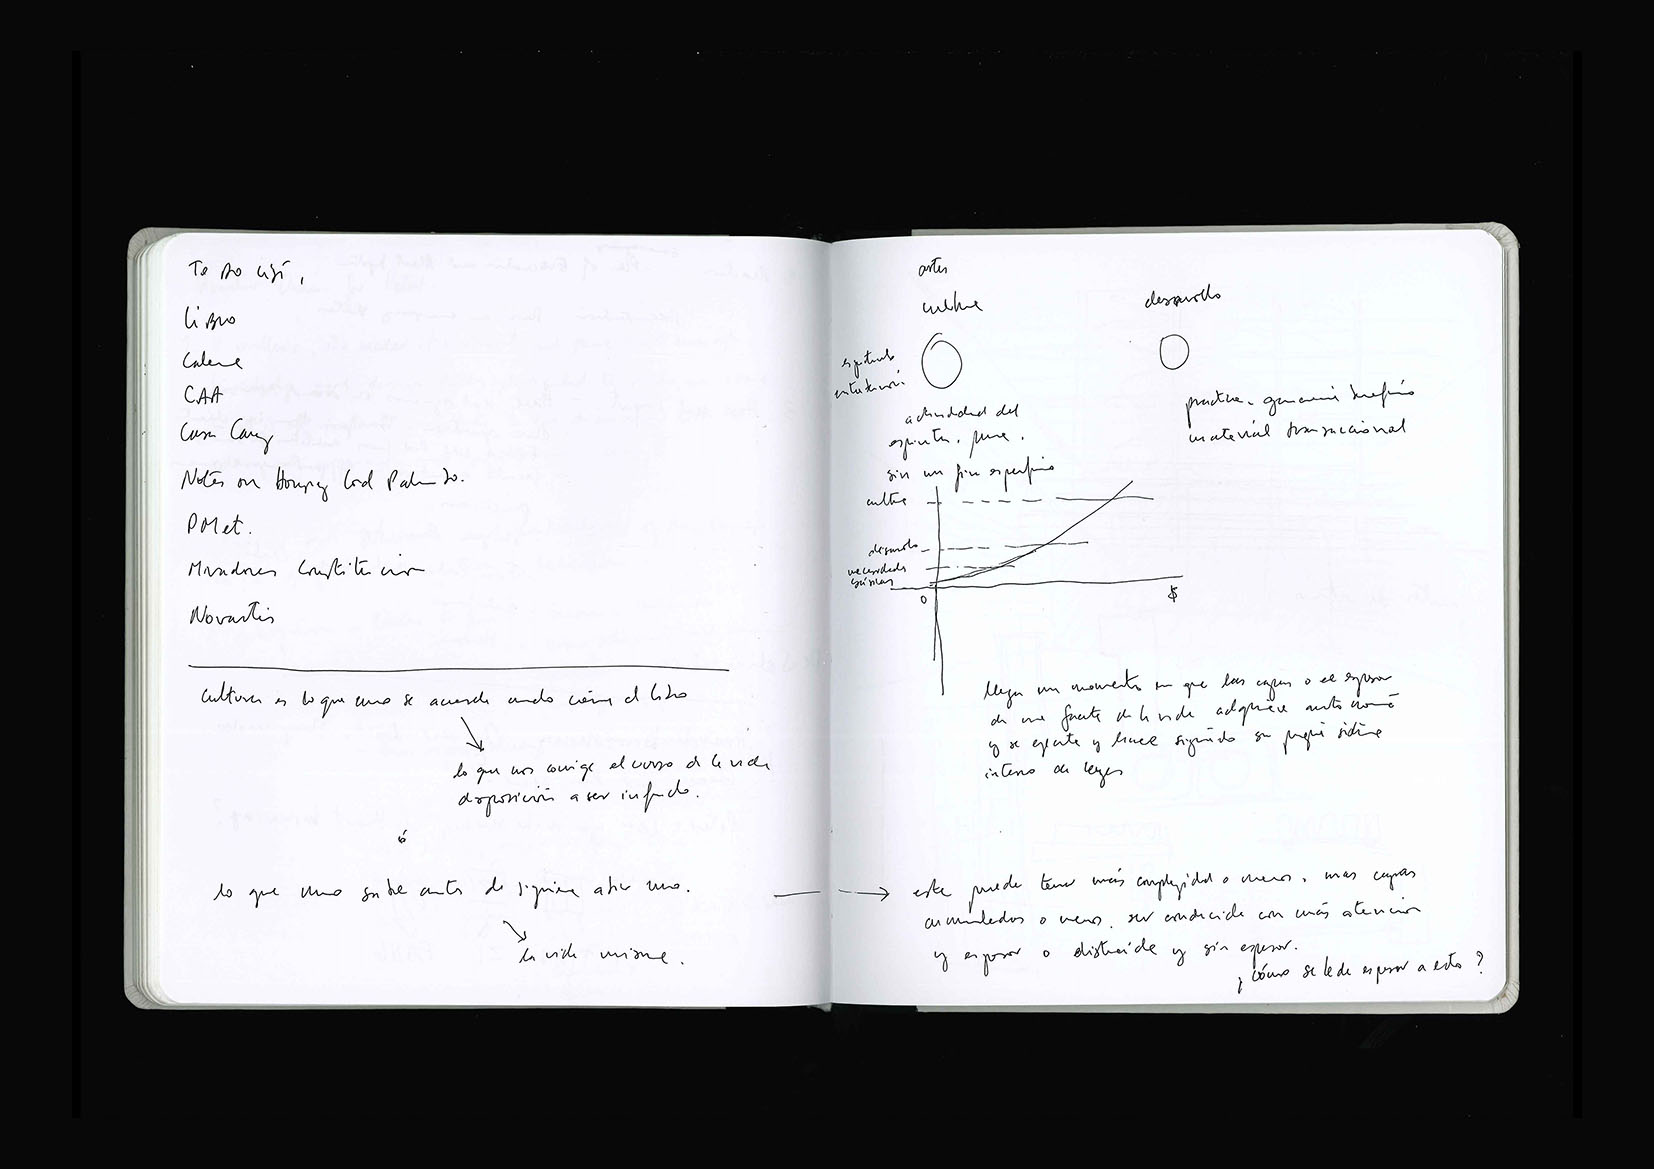 To Do list,
Libro
Calene
CAA
Casa Cary
Notes on Housing Lord Palumbo.
PMet.
Miradores Constitucion
Novartis
cultura es lo que uno se acuerda cuando cierra el libro
lo que nos corrige el curso de la vida
disposición a ser influido.
ó
lo que uno sabe antes de siquiera abrir uno.
la vida misma.
artes
cultura
desarrollo
espíritu
actividad del
espíritu, pura,
sin un fin específico
practica, beneficio
material transaccional
cultura
desarrollo
necesidades
básicas
0
$
llega un momento en que las capas o el espesor
de una faceta de la vida adquiere autonomía
y se ejecuta y hace siguiendo su propio sistema
interno de leyes
esta puede tener más complejidad o menos, mas capas
acumuladas o menos, ser conducida con más atencion
y espesor o distraida y sin espesor.
¿Cómo se le da espesor a esto?